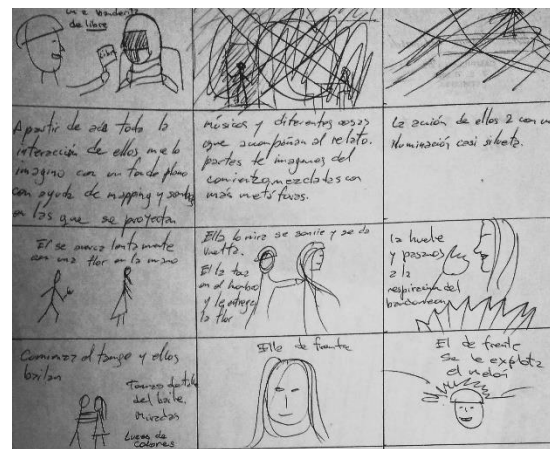 banderita
de libre
Libre
A partir de acá toda la
interacción de ellos me lo
imagino con un fondo plano
con ayuda de mapping y
en las que se proyectan
músicos y diferentes cosas
que acompañan al relato.
partes te imagenes del
comienzo mezcladas con
más metáforas.
La acción de ellos 2 con una
iluminación casi silueta.
El se acerca lentamente
con una flor en la mano
Ella lo mira se sonríe y se da
vuelta.
El la toca
en el hombro
y le entrega
la flor
la huele
y pasamos
a la
respiración del
bandoneon
Comienza el tango y ellos
bailan
Tomas detalle
del baile,
miradas
Luces de
colores
Ella de frente
El de frente
Se le explota
el melón